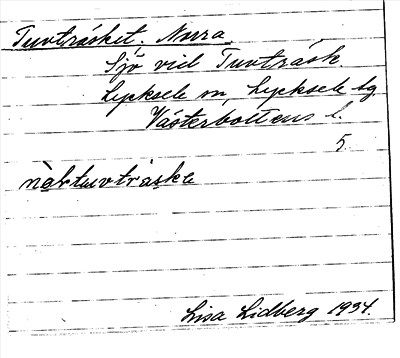 Tuvträsket, Norra
Sjö vid Tuvträsk
Lycksele sn, Lycksele lg
Västerbottens l.
5.
Lisa Lidberg 1934.